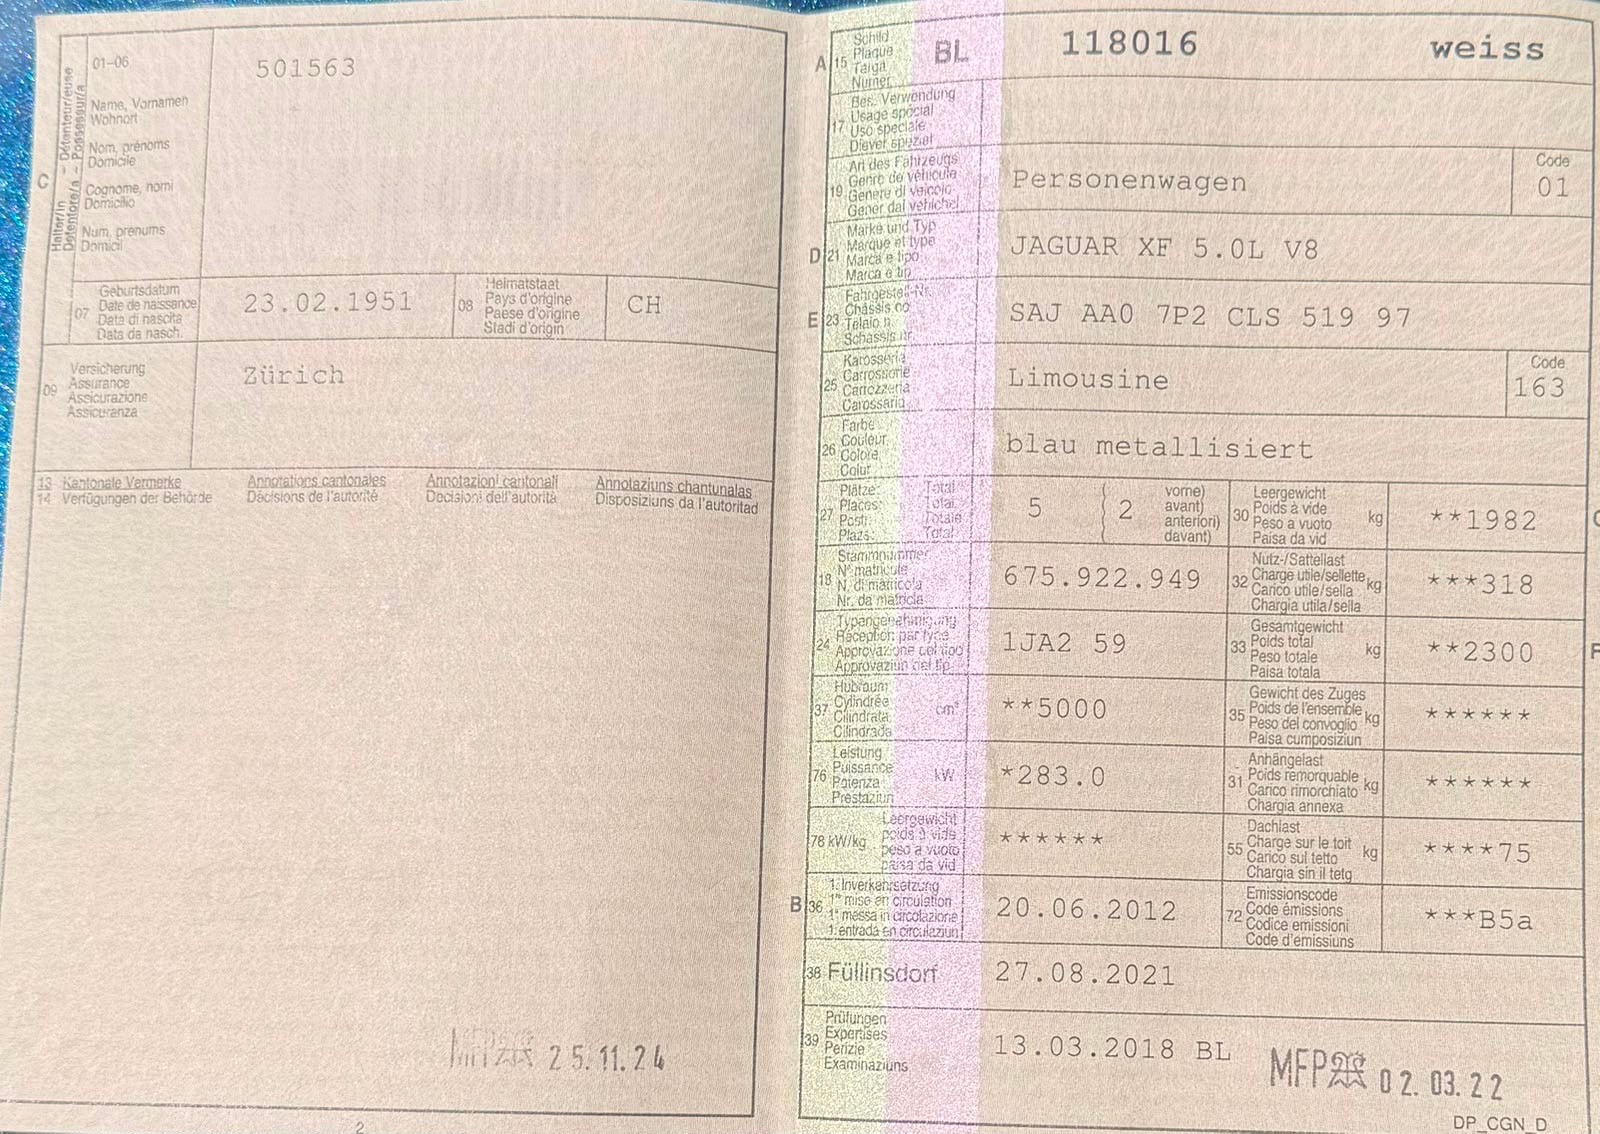 01-06
501563
Halter/in - Détenteur/euse
Detentore/a - Possessur/a
C
Name, Vornamen
Wohnort
Nom, prénoms
Domicile
Cognome, nomi
Domicilio
Num, prenums
Domicil
07
Geburtsdatum
Date de naissance
Data di nascita
Data da nasch.
23.02.1951
08
Heimatstaat
Pays d'origine
Paese d'origine
Stadi d'origin
CH
09
Versicherung
Assurance
Assicurazione
Assicuranza
Zürich
13 Kantonale Vermerke Annotations cantonales Annotazioni cantonali Annotaziuns chantunalas
14 Verfügungen der Behörde Décisions de l'autorité Decisioni dell'autorità Disposiziuns da l'autoritad
MFP 25.11.24
2
A 15
Schild
Plaque
Targa
Numer
BL 118016 weiss
17
Bes. Verwendung
Usage spécial
Uso speciale
Diever spezial
19
Art des Fahrzeugs
Genre de véhicule
Genere di veicolo
Gener dal vehichel
Personenwagen
Code
01
D 21
Marke und Typ
Marque et type
Marca e tipo
Marca e tip
JAGUAR XF 5.0L V8
E 23
Fahrgestell-Nr.
Châssis no
Telaio n.
Schassis nr.
SAJ AA0 7P2 CLS 519 97
25
Karosserie
Carrosserie
Carrozzeria
Carossaria
Limousine
Code
163
26
Farbe
Couleur
Colore
Colur
blau metallisiert
27
Plätze: Total
Places: Total
Posti: Totale
Plazs: Total
5 2
vorne)
avant)
anteriori)
davant)
30
Leergewicht
Poids à vide
Peso a vuoto
Paisa da vid
kg
**1982
18
Stammnummer
N° matricule
N. di matricola
Nr. da matricla
675.922.949
32
Nutz-/Sattellast
Charge utile/sellette
Carico utile/sella
Chargia utila/sella
kg
***318
24
Typengenehmigung
Réception par type
Approvazione del tipo
Approvaziun del tip
1JA2 59
33
Gesamtgewicht
Poids total
Peso totale
Paisa totala
kg
**2300
37
Hubraum
Cylindrée
Cilindrata
Cilindrada
cm³
**5000
35
Gewicht des Zuges
Poids de l'ensemble
Peso del convoglio
Paisa cumposiziun
kg
******
76
Leistung
Puissance
Potenza
Prestaziun
kW
*283.0
31
Anhängelast
Poids remorquable
Carico rimorchiato
Chargia annexa
kg
******
78 kW/kg
Leergewicht
poids à vide
peso a vuoto
paisa da vid
******
55
Dachlast
Charge sur le toit
Carico sul tetto
Chargia sin il tetg
kg
****75
B 36
1. Inverkehrsetzung
1re mise en circulation
1a messa in circolazione
1. entrada en circulaziun
20.06.2012
72
Emissionscode
Code émissions
Codice emissioni
Code d'emissiuns
***B5a
38 Füllinsdorf 27.08.2021
39
Prüfungen
Expertises
Perizie
Examinaziuns
13.03.2018 BL MFP 02.03.22
DP_CGN_D